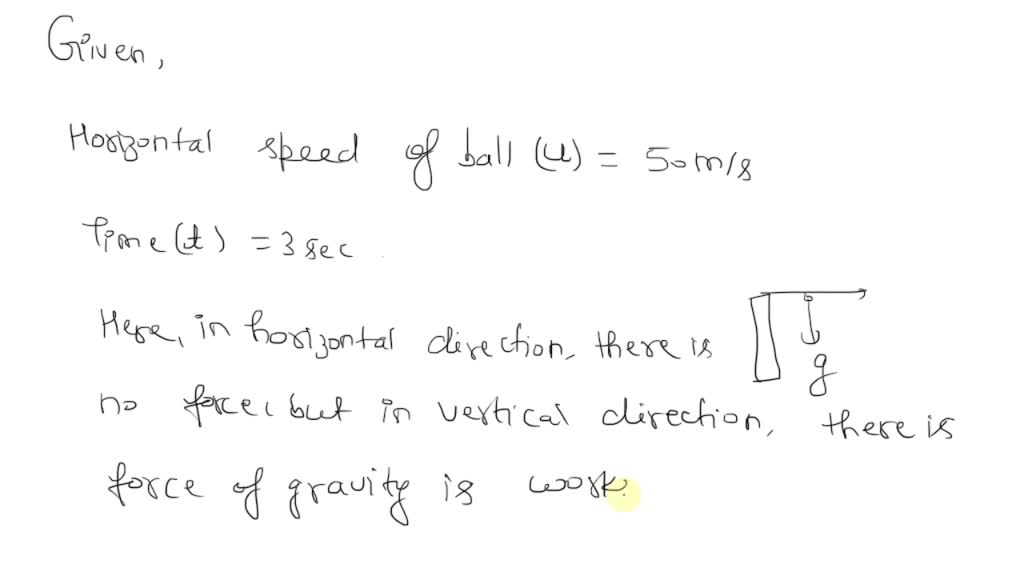 Given,
Horizontal speed of ball (u) = 50 m/s
Time (t) = 3 sec
Here, in horizontal direction, there is
g
no force, but in vertical direction, there is
force of gravity is work.